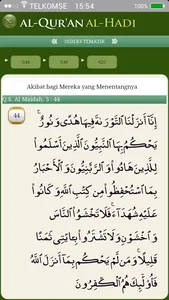 TELKOMSE 15:54
AL-QUR'AN AL-HADI
INDEKS TEMATIK
Akibat bagi Mereka yang Menentangnya
Q.S. Al Maidah, 5 : 44
44
إِنَّآ أَنزَلْنَا ٱلتَّوْرَىٰةَ فِيهَا هُدًى وَنُورٌ ۚ
يَحْكُمُ بِهَا ٱلنَّبِيُّونَ ٱلَّذِينَ أَسْلَمُوا۟
لِلَّذِينَ هَادُوا۟ وَٱلرَّبَّـٰنِيُّونَ وَٱلْأَحْبَارُ
بِمَا ٱسْتُحْفِظُوا۟ مِن كِتَـٰبِ ٱللَّهِ وَكَانُوا۟
عَلَيْهِ شُهَدَآءَ ۚ فَلَا تَخْشَوُا۟ ٱلنَّاسَ
وَٱخْشَوْنِ وَلَا تَشْتَرُوا۟ بِـَٔايَـٰتِى ثَمَنًا
قَلِيلًا ۚ وَمَن لَّمْ يَحْكُم بِمَآ أَنزَلَ ٱللَّهُ
فَأُو۟لَـٰٓئِكَ هُمُ ٱلْكَـٰفِرُونَ